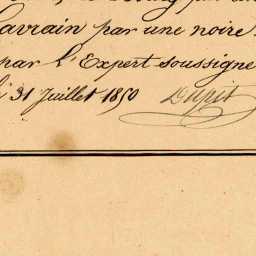 avrain par une noire
par l'Expert soussigné
31 Juillet 1850 Dupit